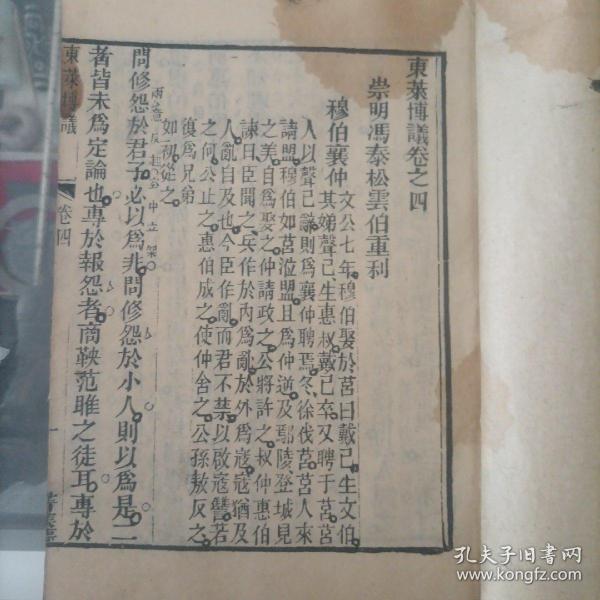 東萊博議卷之四
崇明馮泰松雲伯重刊
穆伯襄仲
文公七年穆伯娶於莒曰戴己生文伯
其娣聲己生惠叔戴己卒又聘于莒莒
人以聲己辭則爲襄仲聘焉冬徐伐莒莒人來
請盟穆伯如莒涖盟且爲仲逆及鄢陵登城見
之美自爲娶之仲請攻之公將許之叔仲惠伯
諫曰臣聞之兵作於內爲亂於外爲寇寇猶及
人亂自及也今臣作亂而君不禁以啟寇讐若
之何公止之惠伯成之使仲舍之公孫敖反之
復爲兄弟
如初從之
問修怨於君子必以爲非問修怨於小人則以爲是二
者皆未爲定論也專於報怨者商鞅范雎之徒耳專於
東萊博議
卷四
一
孔夫子旧书网
www.kongfz.com